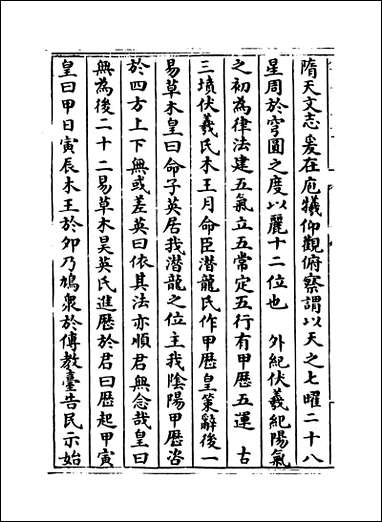 隋天文志爰在庖犧仰觀俯察謂以天之七曜二十八
星周於穹圓之度以麗十二位也　外紀伏羲紀陽氣
之初為律法建五氣立五常定五行有甲歴五運　古
三墳伏羲氏木王月命臣潜龍氏作甲歴皇策辭後一
易草木皇曰命子英居我潜龍之位主我隂陽甲歴咨
於四方上下無或差英曰依其法亦順君無念哉皇曰
無為後二十二易草木昊英氏進歴於君曰歴起甲寅
皇曰甲日寅辰木王於夘乃鳩衆於傳教臺告民示始